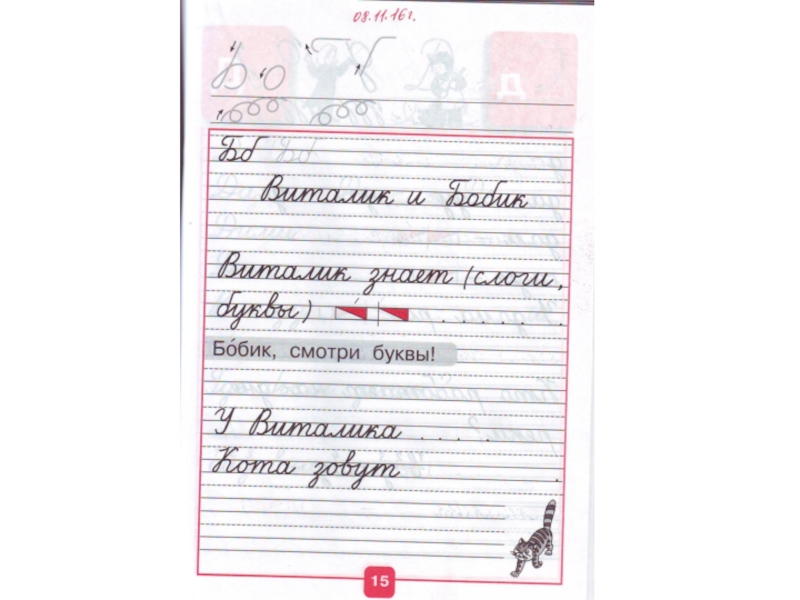 08.11.16г.
Бб
Виталик и Бобик
Виталик знает (слоги,
буквы) . . . . . . .
Бо́бик, смотри буквы!
У Виталика . . . .
Кота зовут .
15